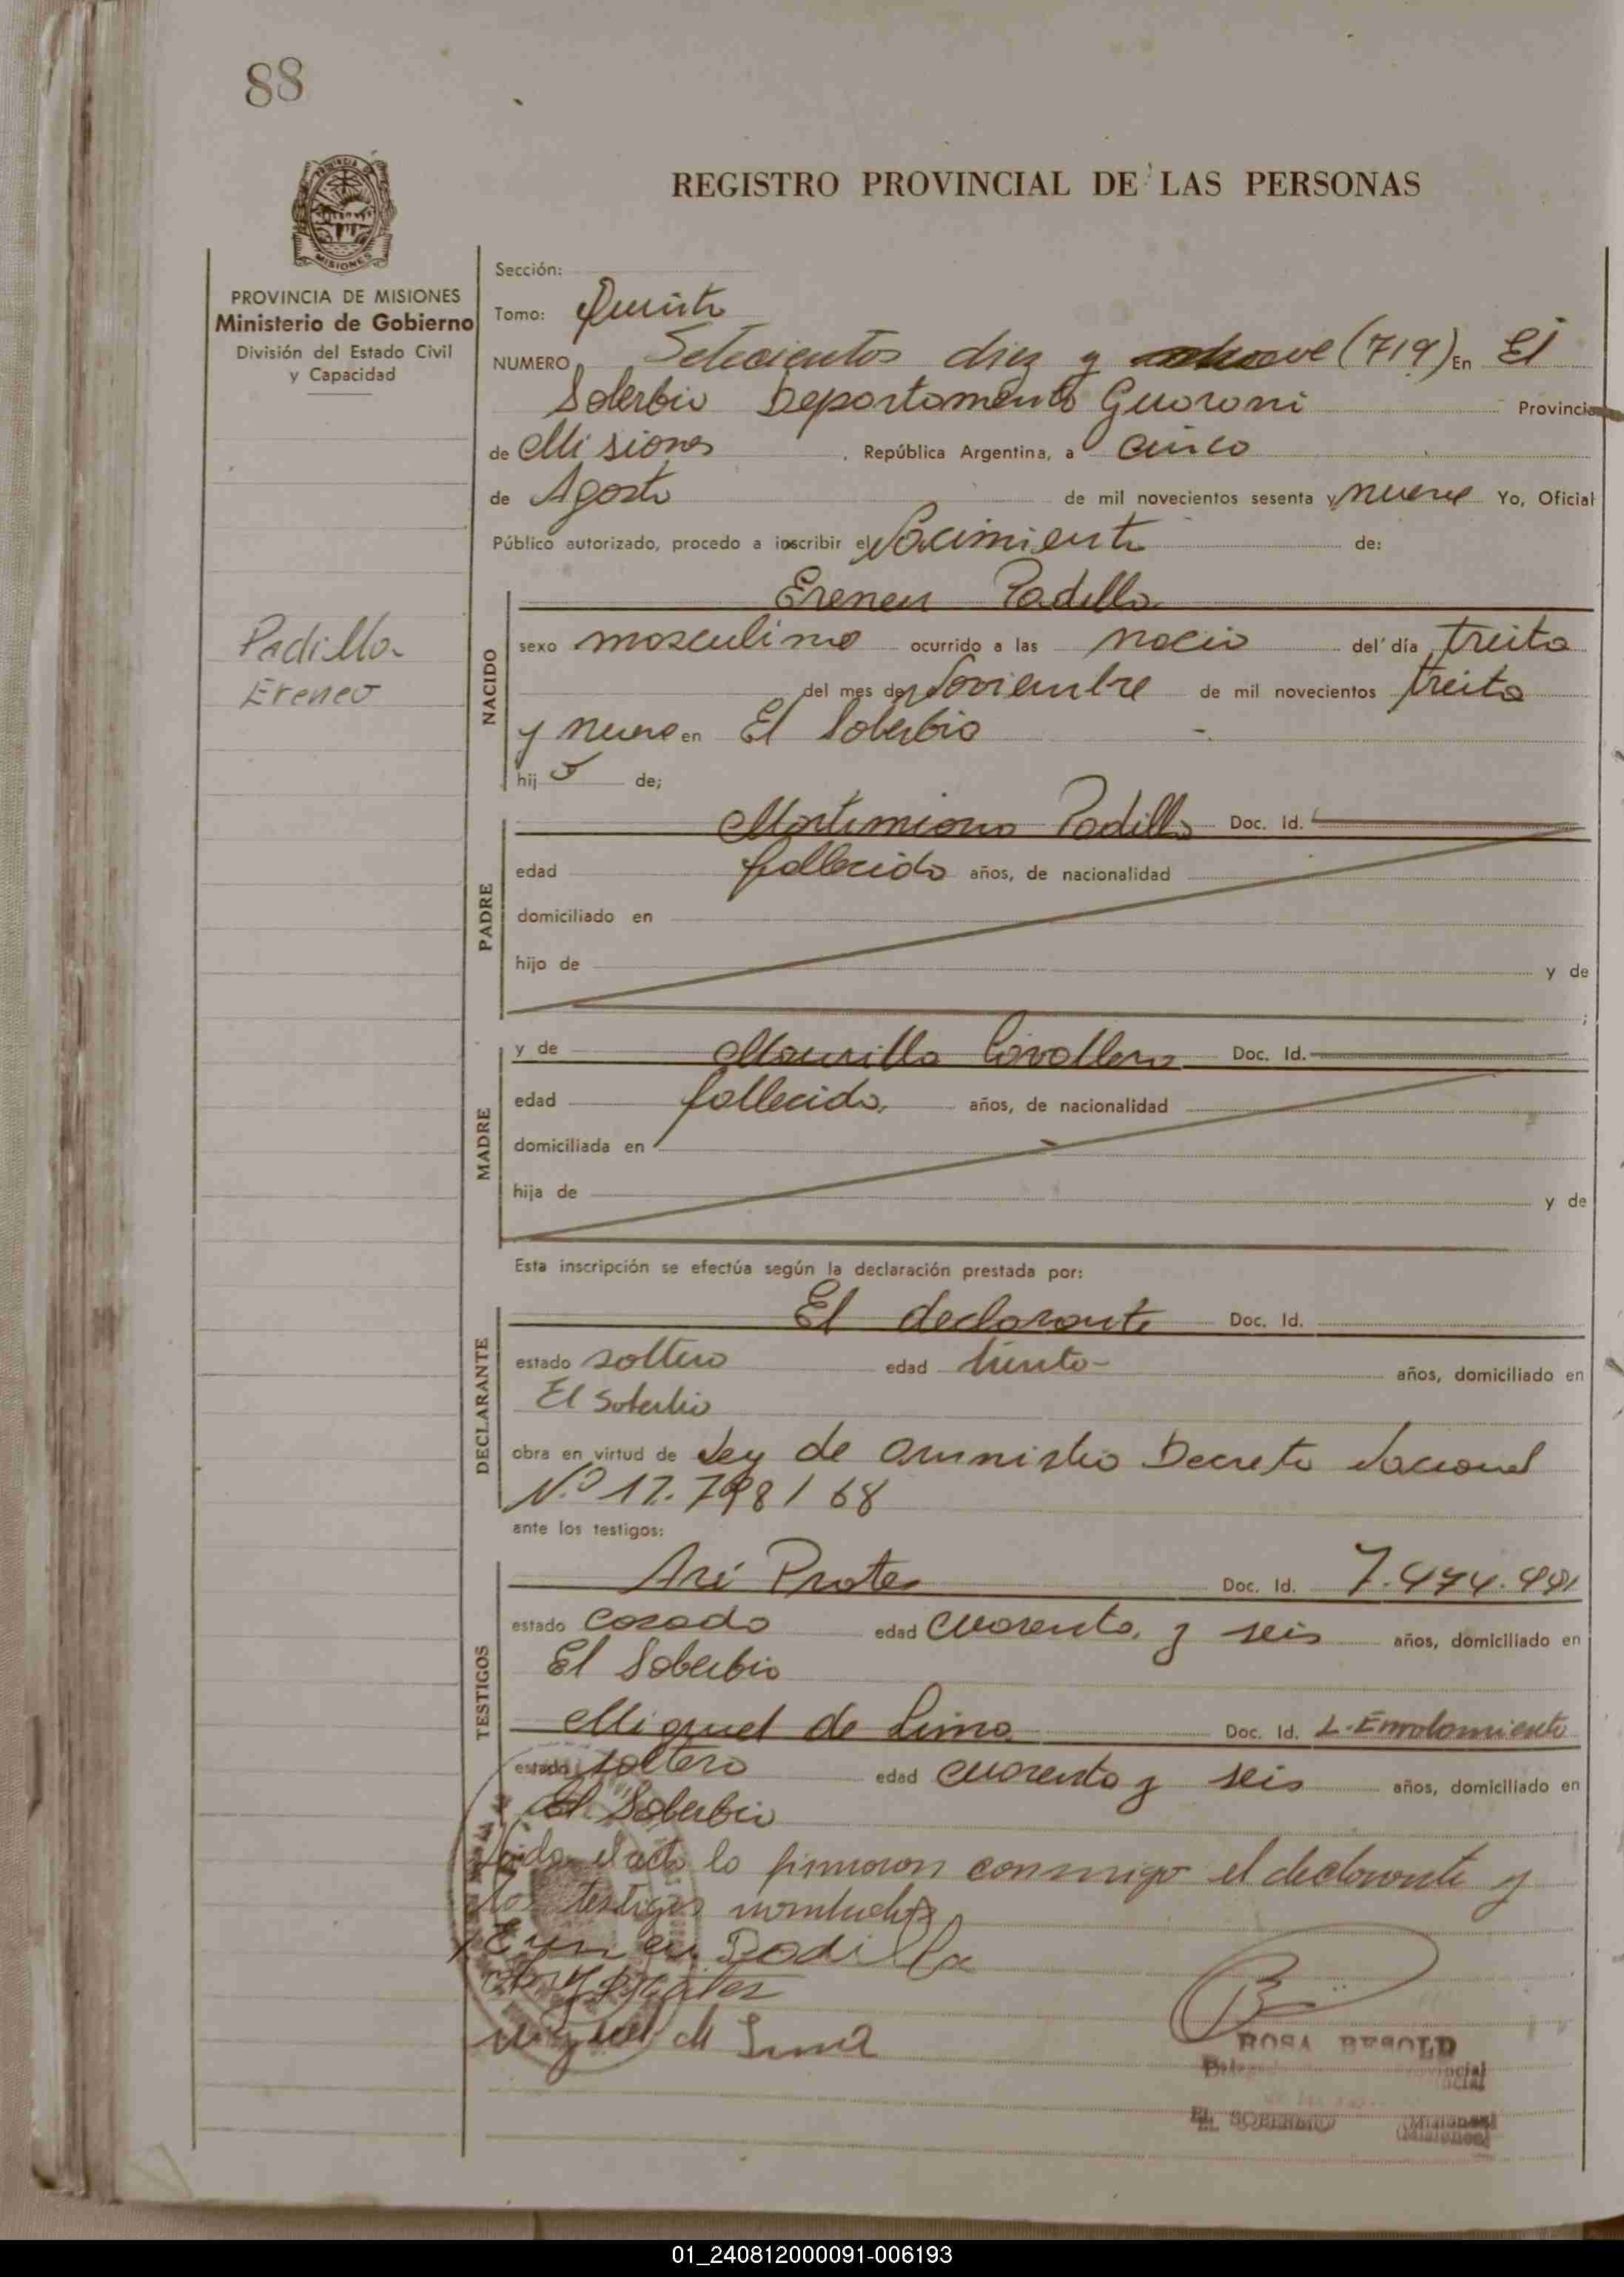 88
PROVINCIA DE MISIONES
REGISTRO PROVINCIAL DE LAS PERSONAS
PROVINCIA DE MISIONES
Ministerio de Gobierno
División del Estado Civil
y Capacidad
Padilla
Ereneo
Sección:
Tomo: Quinto
NUMERO Setecientos diez y nueve (719) En El
Soberbio Departamento Guaraní Provincia
de Misiones, República Argentina, a cinco
de Agosto de mil novecientos sesenta y nueve Yo, Oficial
Público autorizado, procedo a inscribir el Nacimiento de:
NACIDO
Ereneu Padilla
sexo masculino ocurrido a las nacio del día treita
del mes de Noviembre de mil novecientos treita
y nueve en El Soberbio
hijo de;
PADRE
Martimiano Padilla Doc. Id.
edad fallecido años, de nacionalidad
domiciliado en
hijo de y de
;
MADRE
y de Maurilla Cavallero Doc. Id.
edad fallecida años, de nacionalidad
domiciliada en
hija de y de
Esta inscripción se efectúa según la declaración prestada por:
DECLARANTE
El declarante Doc. Id.
estado soltero edad años, domiciliado en
El Soberbio
obra en virtud de Ley de amnistia Decreto Nacional
N.º 17.798/68
ante los testigos:
TESTIGOS
Ari Prates Doc. Id.
estado casado edad cuarenta y seis años, domiciliado en
El Soberbio
Miguel de Lima Doc. Id. L. Enrolamiento
estado soltero edad cuarenta y seis años, domiciliado en
El Soberbio
Leida el acta lo firmaron conmigo el declarante y
los testigos nombrados
Ereneu Padilla
Ary Prates
Miguel de Lima
ROSA BESOLD
EL SOBERBIO (Misiones)
01_240812000091-006193